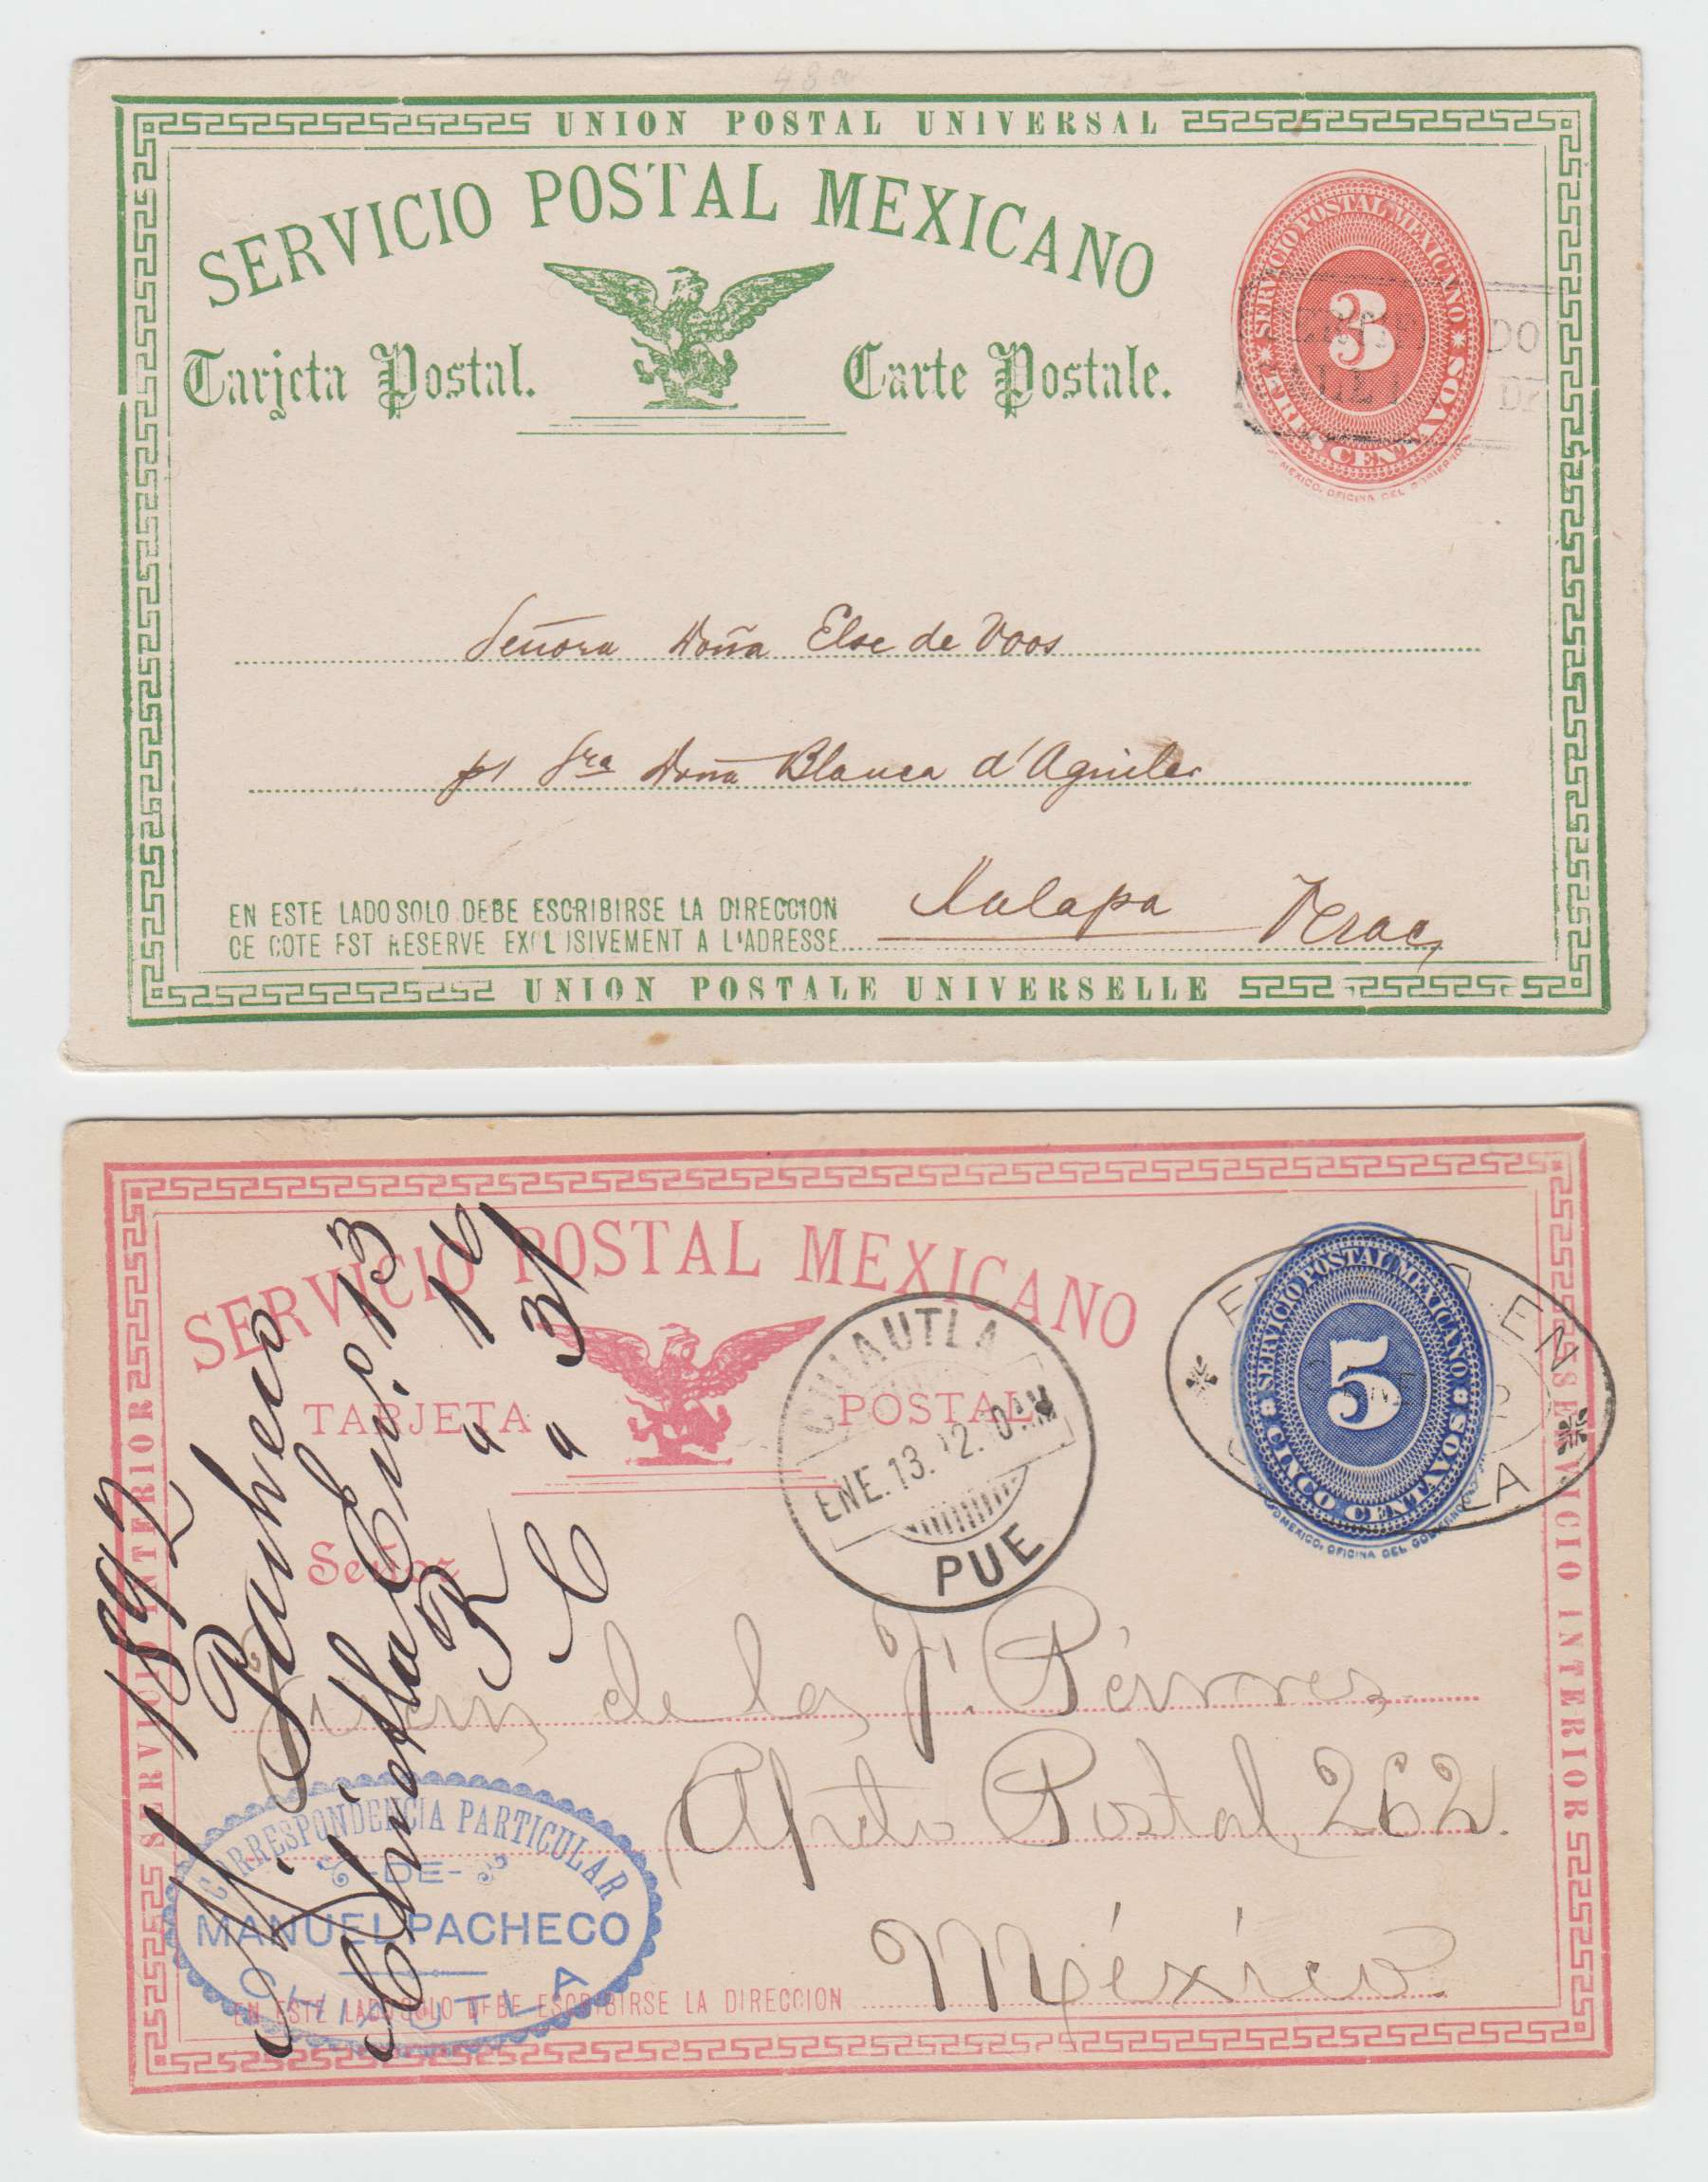 48a
UNION POSTAL UNIVERSAL
SERVICIO POSTAL MEXICANO
Tarjeta Postal.
Carte Postale.
SERVICIO POSTAL MEXICANO
3
TRES CENTAVOS
MEXICO, OFICINA DEL GOBIERNO
DO
VALE
Señora Doña Else de Voos
p/ Sra Doña Blanca d'Aguilar
Xalapa Verac
EN ESTE LADO SOLO DEBE ESCRIBIRSE LA DIRECCION
CE COTE EST RESERVE EXCLUSIVEMENT A L'ADRESSE
UNION POSTALE UNIVERSELLE
SERVICIO POSTAL MEXICANO
TARJETA POSTAL
SERVICIO INTERIOR
SERVICIO INTERIOR
SERVICIO POSTAL MEXICANO
5
CINCO CENTAVOS
MEXICO, OFICINA DEL GOBIERNO
EN
LA
CHIAUTLA
ENE. 13.
PUE
Señor
Juan de la J.
Apto Postal 262.
México.
1892
M. Pacheco
Chiautla Eno. 13
R " 16
C " 31
CORRESPONDENCIA PARTICULAR
-DE-
MANUEL PACHECO
CHIAUTLA
EN ESTE LADO SOLO DEBE ESCRIBIRSE LA DIRECCION